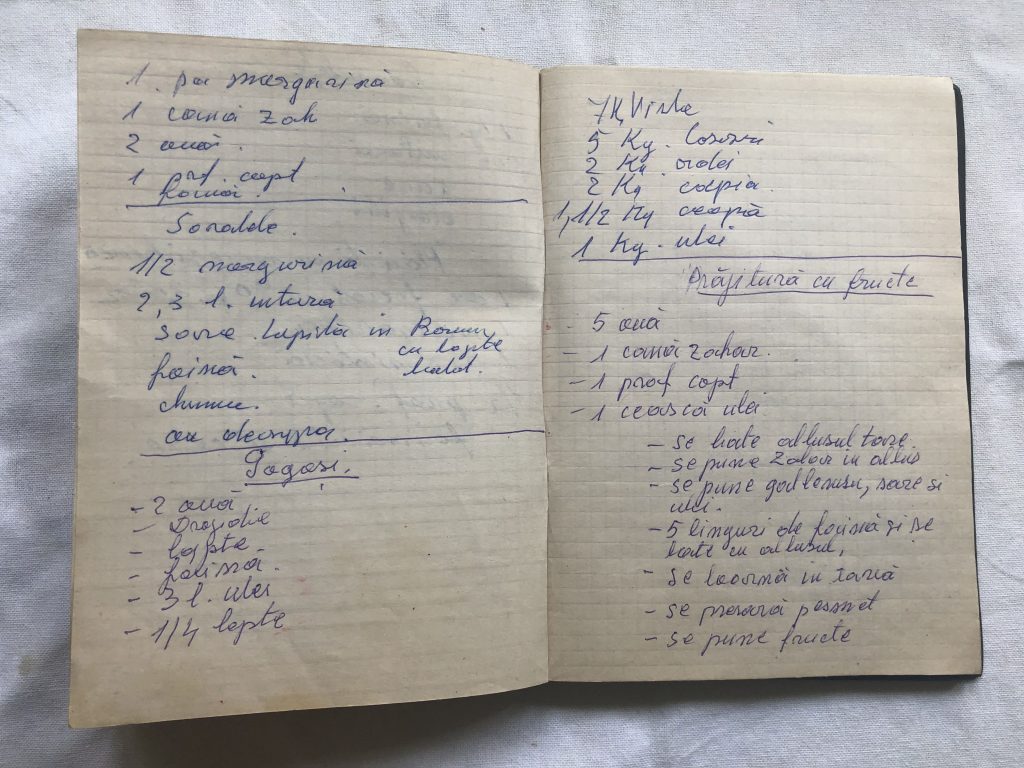 1 pa margarină
1 cană zah
2 ouă.
1 prf. copt
făină.
Saralde.
1/2 margarină
2, 3 l. untură
Sare
cu lapte
făină.
cald.
chimen.
Gogoși.
- 2 ouă
- Drojdie
- lapte.
- făină.
- 3 l. ulei
- 1/4 lapte
7 K Vinete
5 Kg.
2 Kg. ardei
2 Kg capia.
1, 1/2 Kg ceapă
1 Kg. ulei
Prăjitură cu fructe
- 5 ouă
- 1 cană zahar.
- 1 praf copt
- 1 ceasca ulei
- se bate albusul tare.
- se pune Zahar in albus
- se pune galbenusu, sare si
ulei.
- 5 linguri de făină și se
bate cu albusul,
- se toarnă in tavă
- se presară pesmet
- se pune fructe